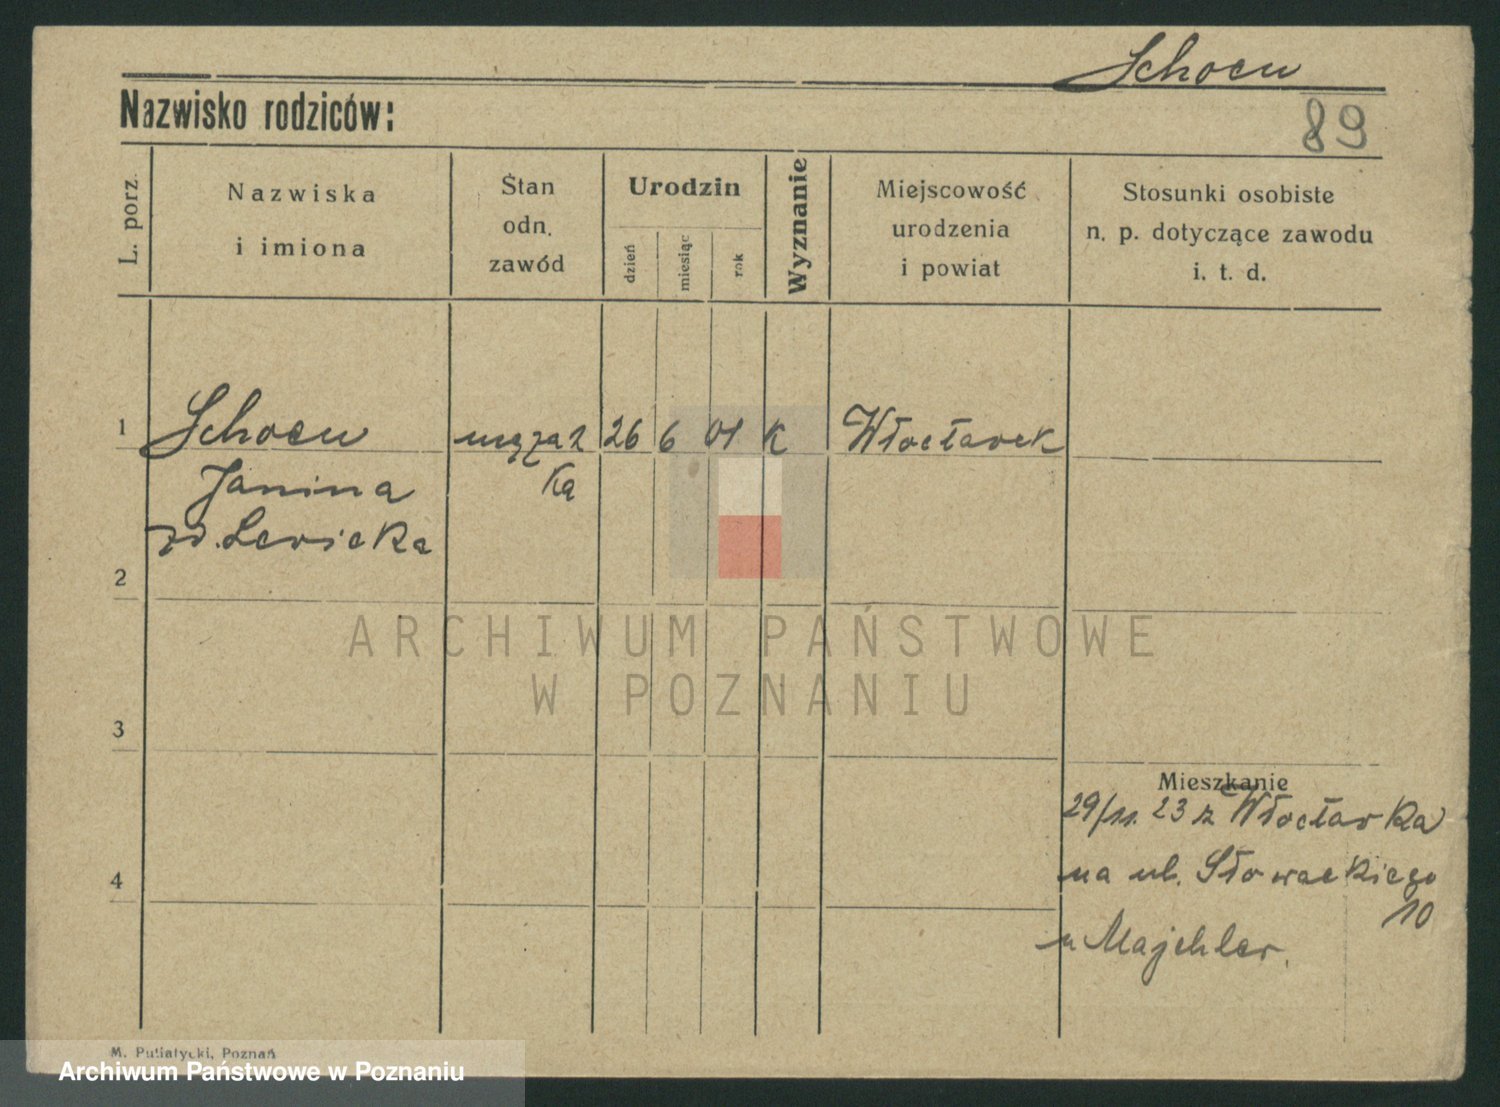 Schoen
Nazwisko rodziców:
89
L. porz.
Nazwiska
i imiona
Stan
odn.
zawód
Urodzin
dzień
miesiąc
rok
Wyznanie
Miejscowość
urodzenia
i powiat
Stosunki osobiste
n. p. dotyczące zawodu
i. t. d.
1 Schoen mężat 26 6 01 K Włocławek
Janina ka
zd. Lewicka
2
ARCHIWUM PAŃSTWOWE
W POZNANIU
3
Mieszkanie
29/11. 23 z Włocławka
4
na ul. Słowackiego
10
u Majchler.
M. Putiatycki, Poznań
Archiwum Państwowe w Poznaniu